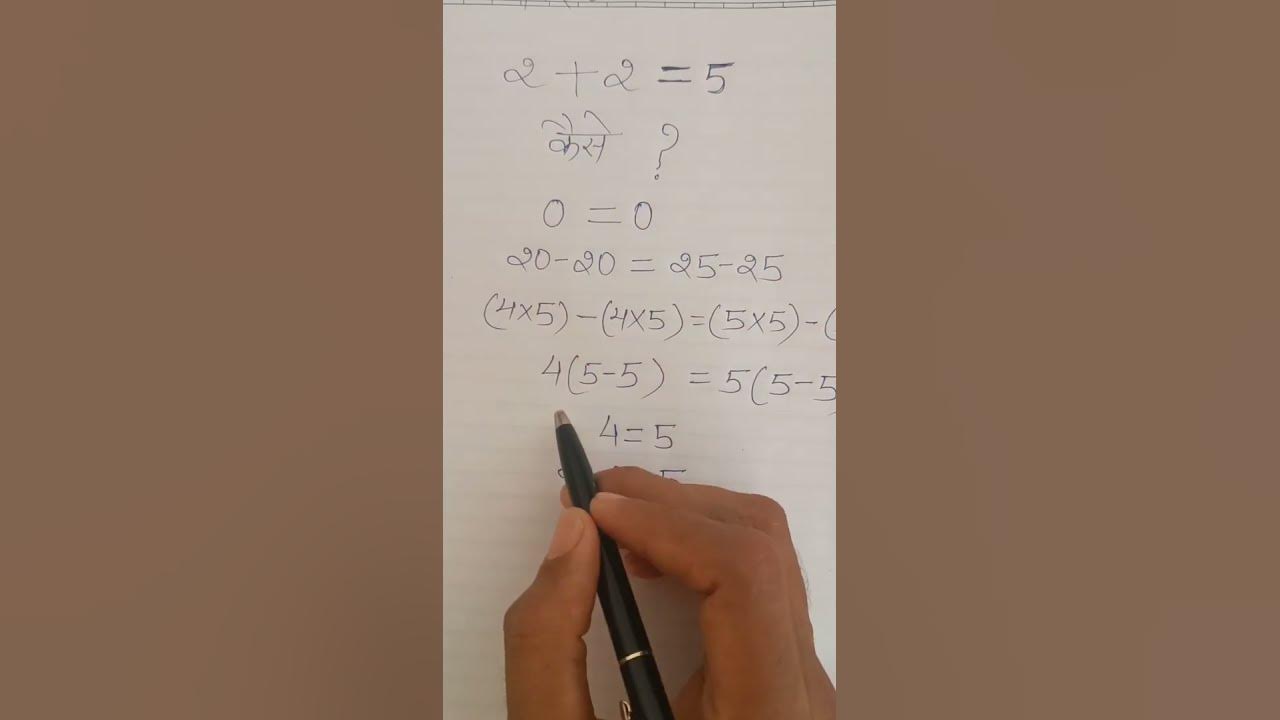 2+2=5
कैसे ?
0=0
20-20=25-25
(4×5)-(4×5)=(5×5)-(
4(5-5) = 5(5-5
4=5